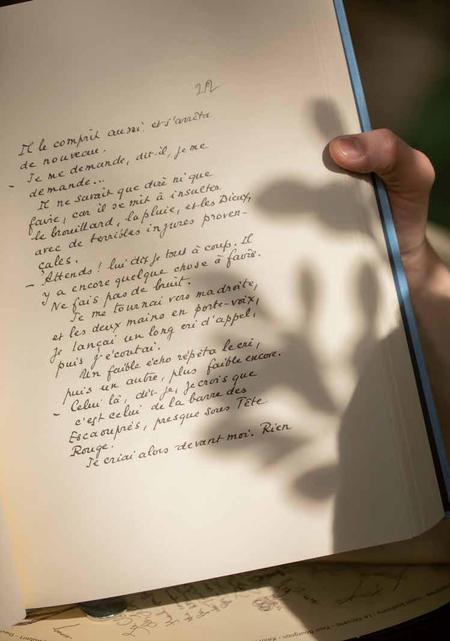 212
Il le comprit aussi et s'arrêta
de nouveau.
- Je me demande, dit-il, je me
demande...
Il ne savait que dire ni que
faire, car il se mit à insulter
le brouillard, la pluie, et les Dieux,
avec de terribles injures proven-
çales.
- Attends ! lui dis-je tout à coup. Il
y a encore quelque chose à faire.
Ne fais pas de bruit.
Je me tournai vers ma droite,
et les deux mains en porte-voix,
je lançai un long cri d'appel,
puis j'écoutai.
Un faible écho répéta le cri,
puis un autre, plus faible encore.
- Celui là, dis-je, je crois que
c'est celui de la barre des
Escaouprès, presque sous Tête
Rouge.
Je criai alors devant moi. Rien